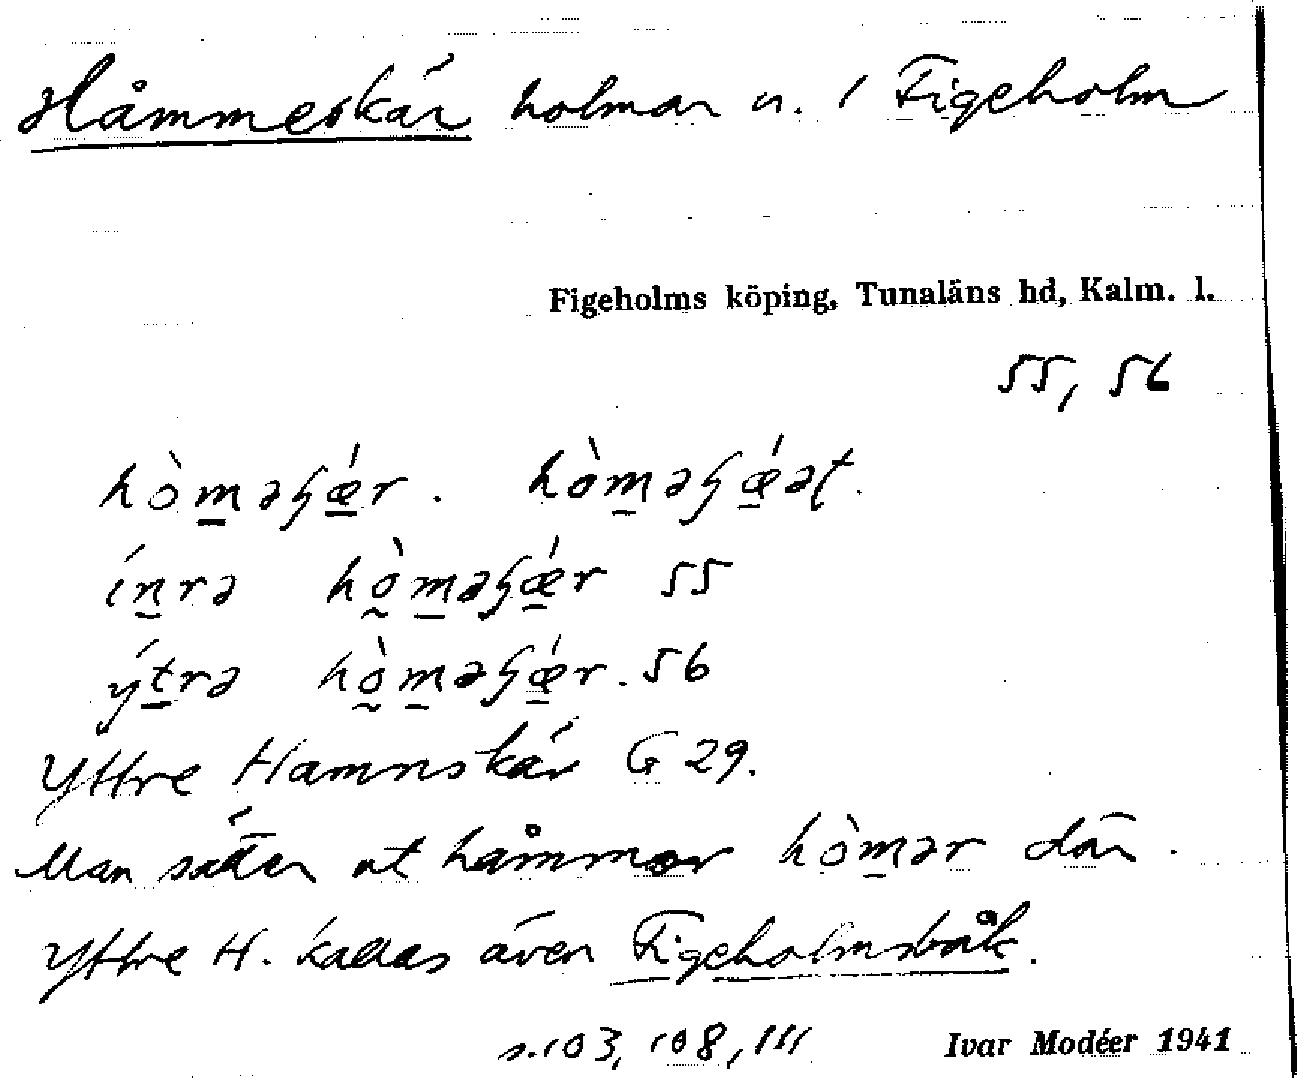 Håmmeskär holmar n. / Figeholm
Figeholms köping, Tunaläns hd, Kalm. l.
55, 56
hòməʂǽr. hòməʂǽət.
ínrə hòməʂǽr 55
ýtrə hòməʂǽr. 56
Yttre Hamnskär G 29.
Man sätter ut håmmor hòmər där.
Yttre H. kallas även Figeholmsbåk.
s. 103, 108, 111 Ivar Modéer 1941